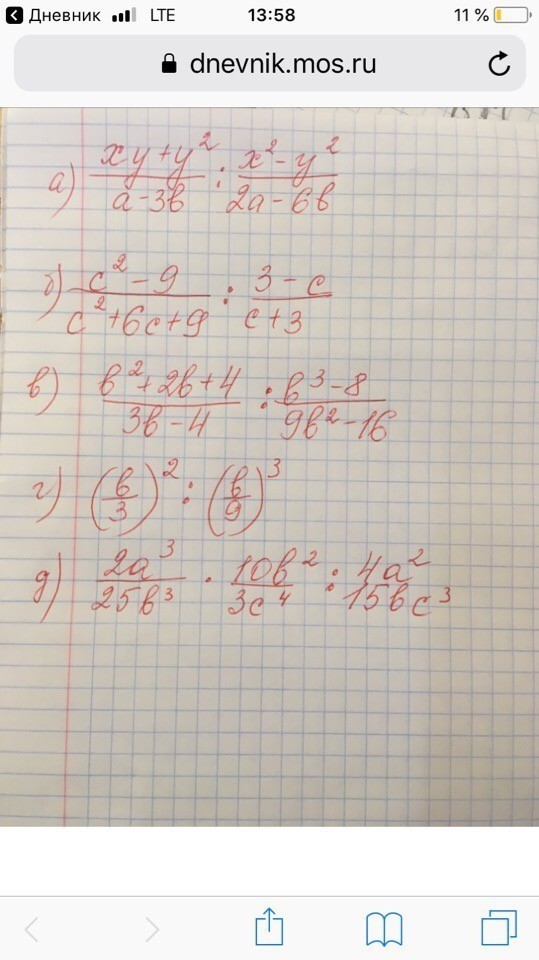 Дневник LTE 13:58 11 %
dnevnik.mos.ru
а) (xy+y²)/(a-3b) : (x²-y²)/(2a-6b)
б) (c²-9)/(c²+6c+9) : (3-c)/(c+3)
в) (b²+2b+4)/(3b-4) : (b³-8)/(9b²-16)
г) (b/3)² : (b/9)³
д) 2a³/25b³ · 10b²/3c⁴ : 4a²/15bc³